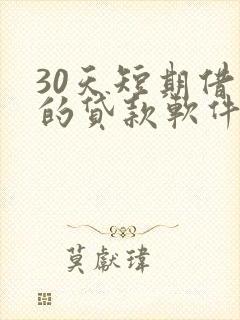 30天短期借
的贷款軟件
莫獻瑋